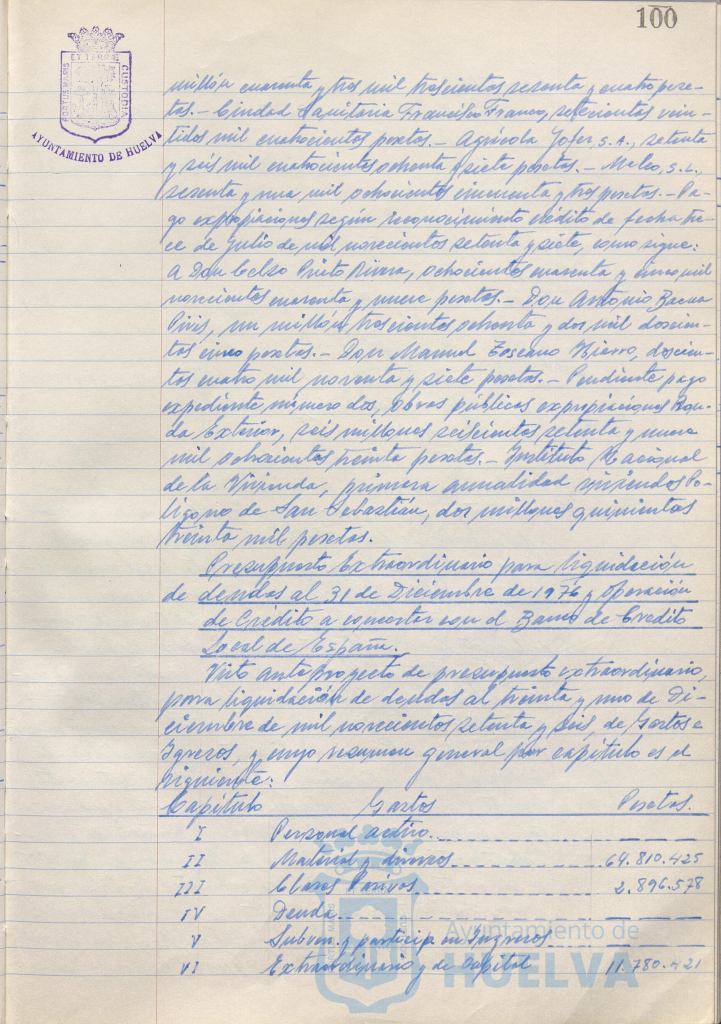 100
PORTUS MARIS
ET TERRE
CUSTODIA
AYUNTAMIENTO DE HUELVA
millón cuarenta y tres mil trescientos sesenta y cuatro pese-
tas.- Ciudad Sanitaria Francisco Franco, setecientas vein-
tidos mil cuatrocientas pesetas.- Agrísola Jofer, s.a., setenta
y seis mil cuatrocientas ochenta y siete pesetas.- Melco, s.L.,
sesenta y una mil ochocientas cincuenta y tres pesetas.- Pa-
go expropiaciones según reconocimiento crédito de fecha tre-
ce de Julio de mil novecientos setenta y siete, como sigue:
a Don Celso Prieto Rivera, ochocientas cuarenta y cinco mil
novecientas cuarenta y nueve pesetas.- Don Antonio Baena
un millón trescientas ochenta y dos mil doscien-
tas cinco pesetas.- Don Manuel Toscano Fierro, doscien-
tas cuatro mil noventa y siete pesetas.- Pendiente pago
expediente número dos, obras públicas expropiaciones Ron-
da Exterior, seis millones seiscientas setenta y nueve
mil ochocientas treinta pesetas.- Instituto Nacional
de la Vivienda, primera anualidad viviendas Po-
lígono de San Sebastián, dos millones quinientas
treinta mil pesetas.
Presupuesto Extraordinario para liquidación
de deudas al 31 de Diciembre de 1976 y Operación
de Crédito a concertar con el Banco de Credito
Local de España.
Visto anteproyecto de presupuesto extraordinario,
para liquidación de deudas al treinta y uno de Di-
ciembre de mil novecientos setenta y seis, de Gastos e
Ingresos, y cuyo resumen general por capítulo es el
siguiente:
Capítulo Gastos Pesetas.
I Personal activo
II Material y diversos 64.810.425
III Clases Pasivas 2.896.578
IV Deuda
V Subven. y particip. en Ingresos
VI Extraordinario y de Capital 11.780.421
Ayuntamiento de
HUELVA